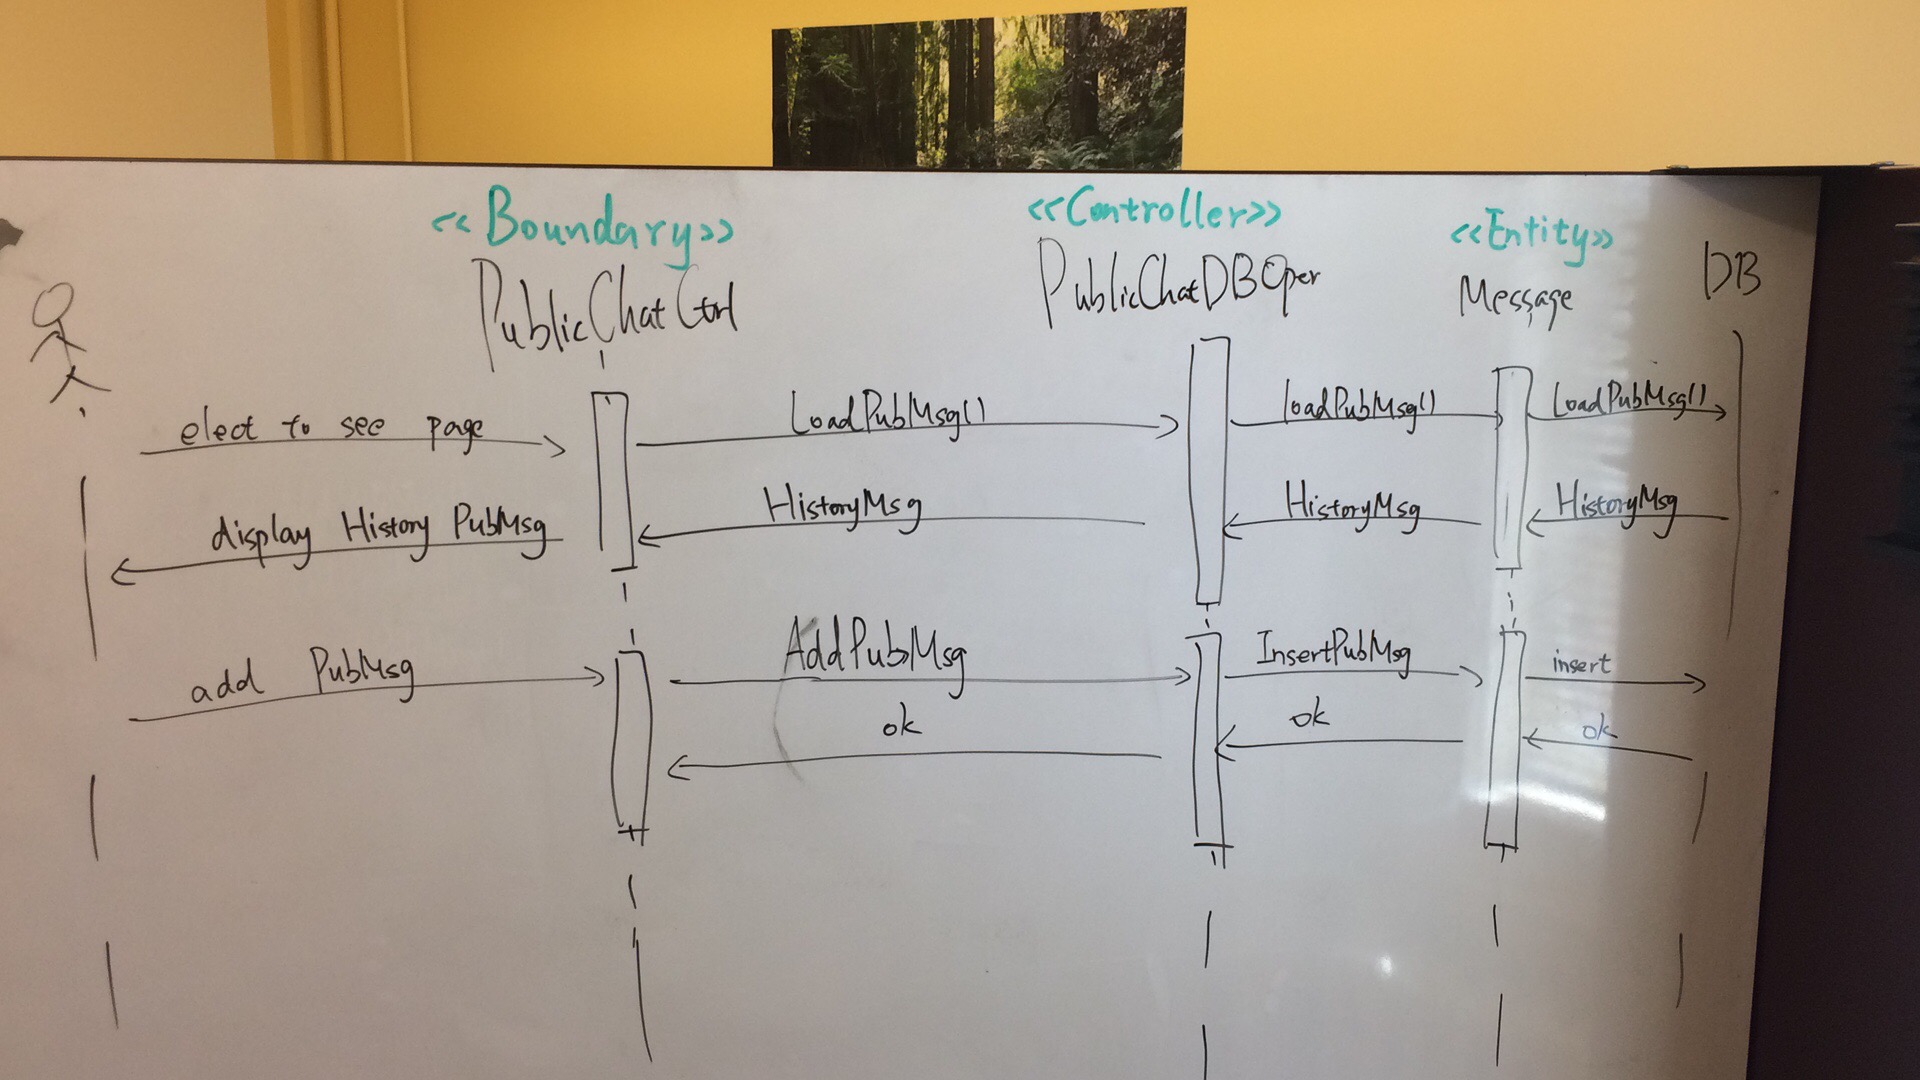 <<Boundary>>
<<Controller>>
<<Entity>>
DB
PublicChatCtrl
PublicChatDBOper
Message
elect to see page
LoadPubMsg()
loadPubMsg()
LoadPubMsg()
display History PubMsg
HistoryMsg
HistoryMsg
HistoryMsg
add PubMsg
AddPubMsg
InsertPubMsg
insert
ok
ok
ok